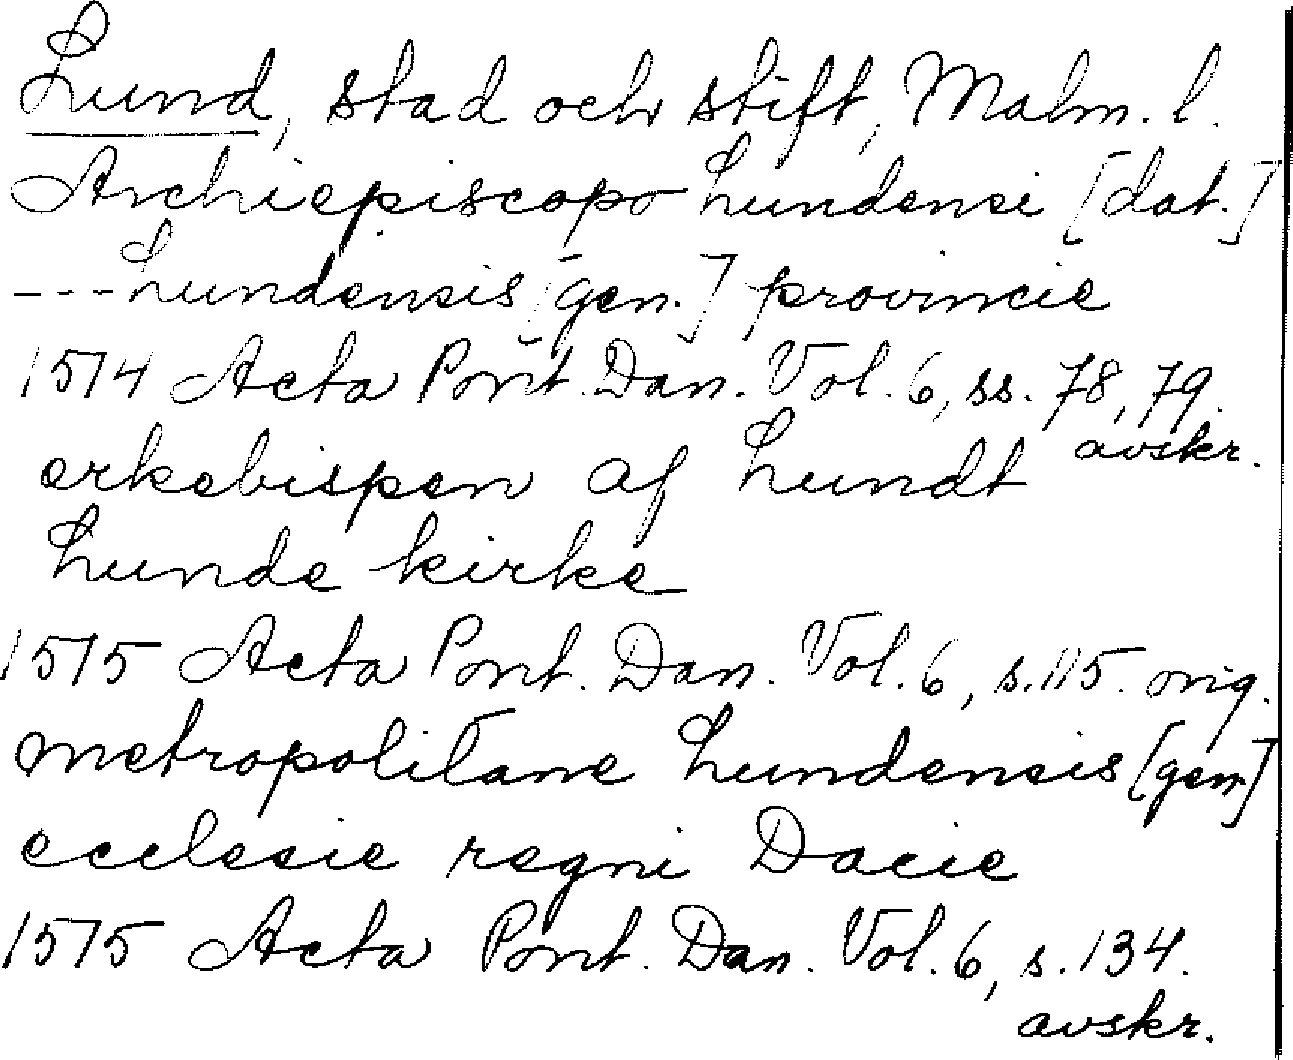 Lund, stad och stift, Malm. l.
Archiepiscopo Lundensi [dat.]
--- Lundensis [gen.] provincie
1514 Acta Pont. Dan. Vol. 6, ss. 78, 79.
avskr.
erkebispen af Lundt
Lunde kirke
1515 Acta Pont. Dan. Vol. 6, s. 115. orig.
metropolitane Lundensis [gen]
ecclesie regni Dacie
1515 Acta Pont. Dan. Vol. 6, s. 134.
avskr.